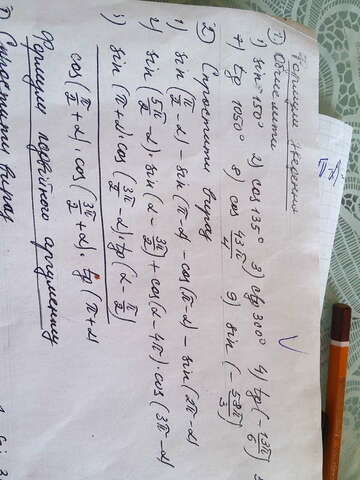 Формули зведення
I) Обчислити
1) sin 150° 2) cos 135° 3) ctg 300° 4) tg(-13π/6)
7) tg 1050° 8) cos 43π/4 9) sin(-53π/3)
2) Спростити вираз
1) sin(π/2-α) - sin(π-α) - cos(π-α) - sin(2π-α)
2) sin(5π/2-α)·sin(α-3π/2)+cos(α-4π)·cos(3π-α)
sin(π+α)cos(3π/2-α)·tg(α-π/2)
cos(π/2+α)·cos(3π/2+α)·tg(π+α)
Формули подвійного аргументу
Спростити вираз